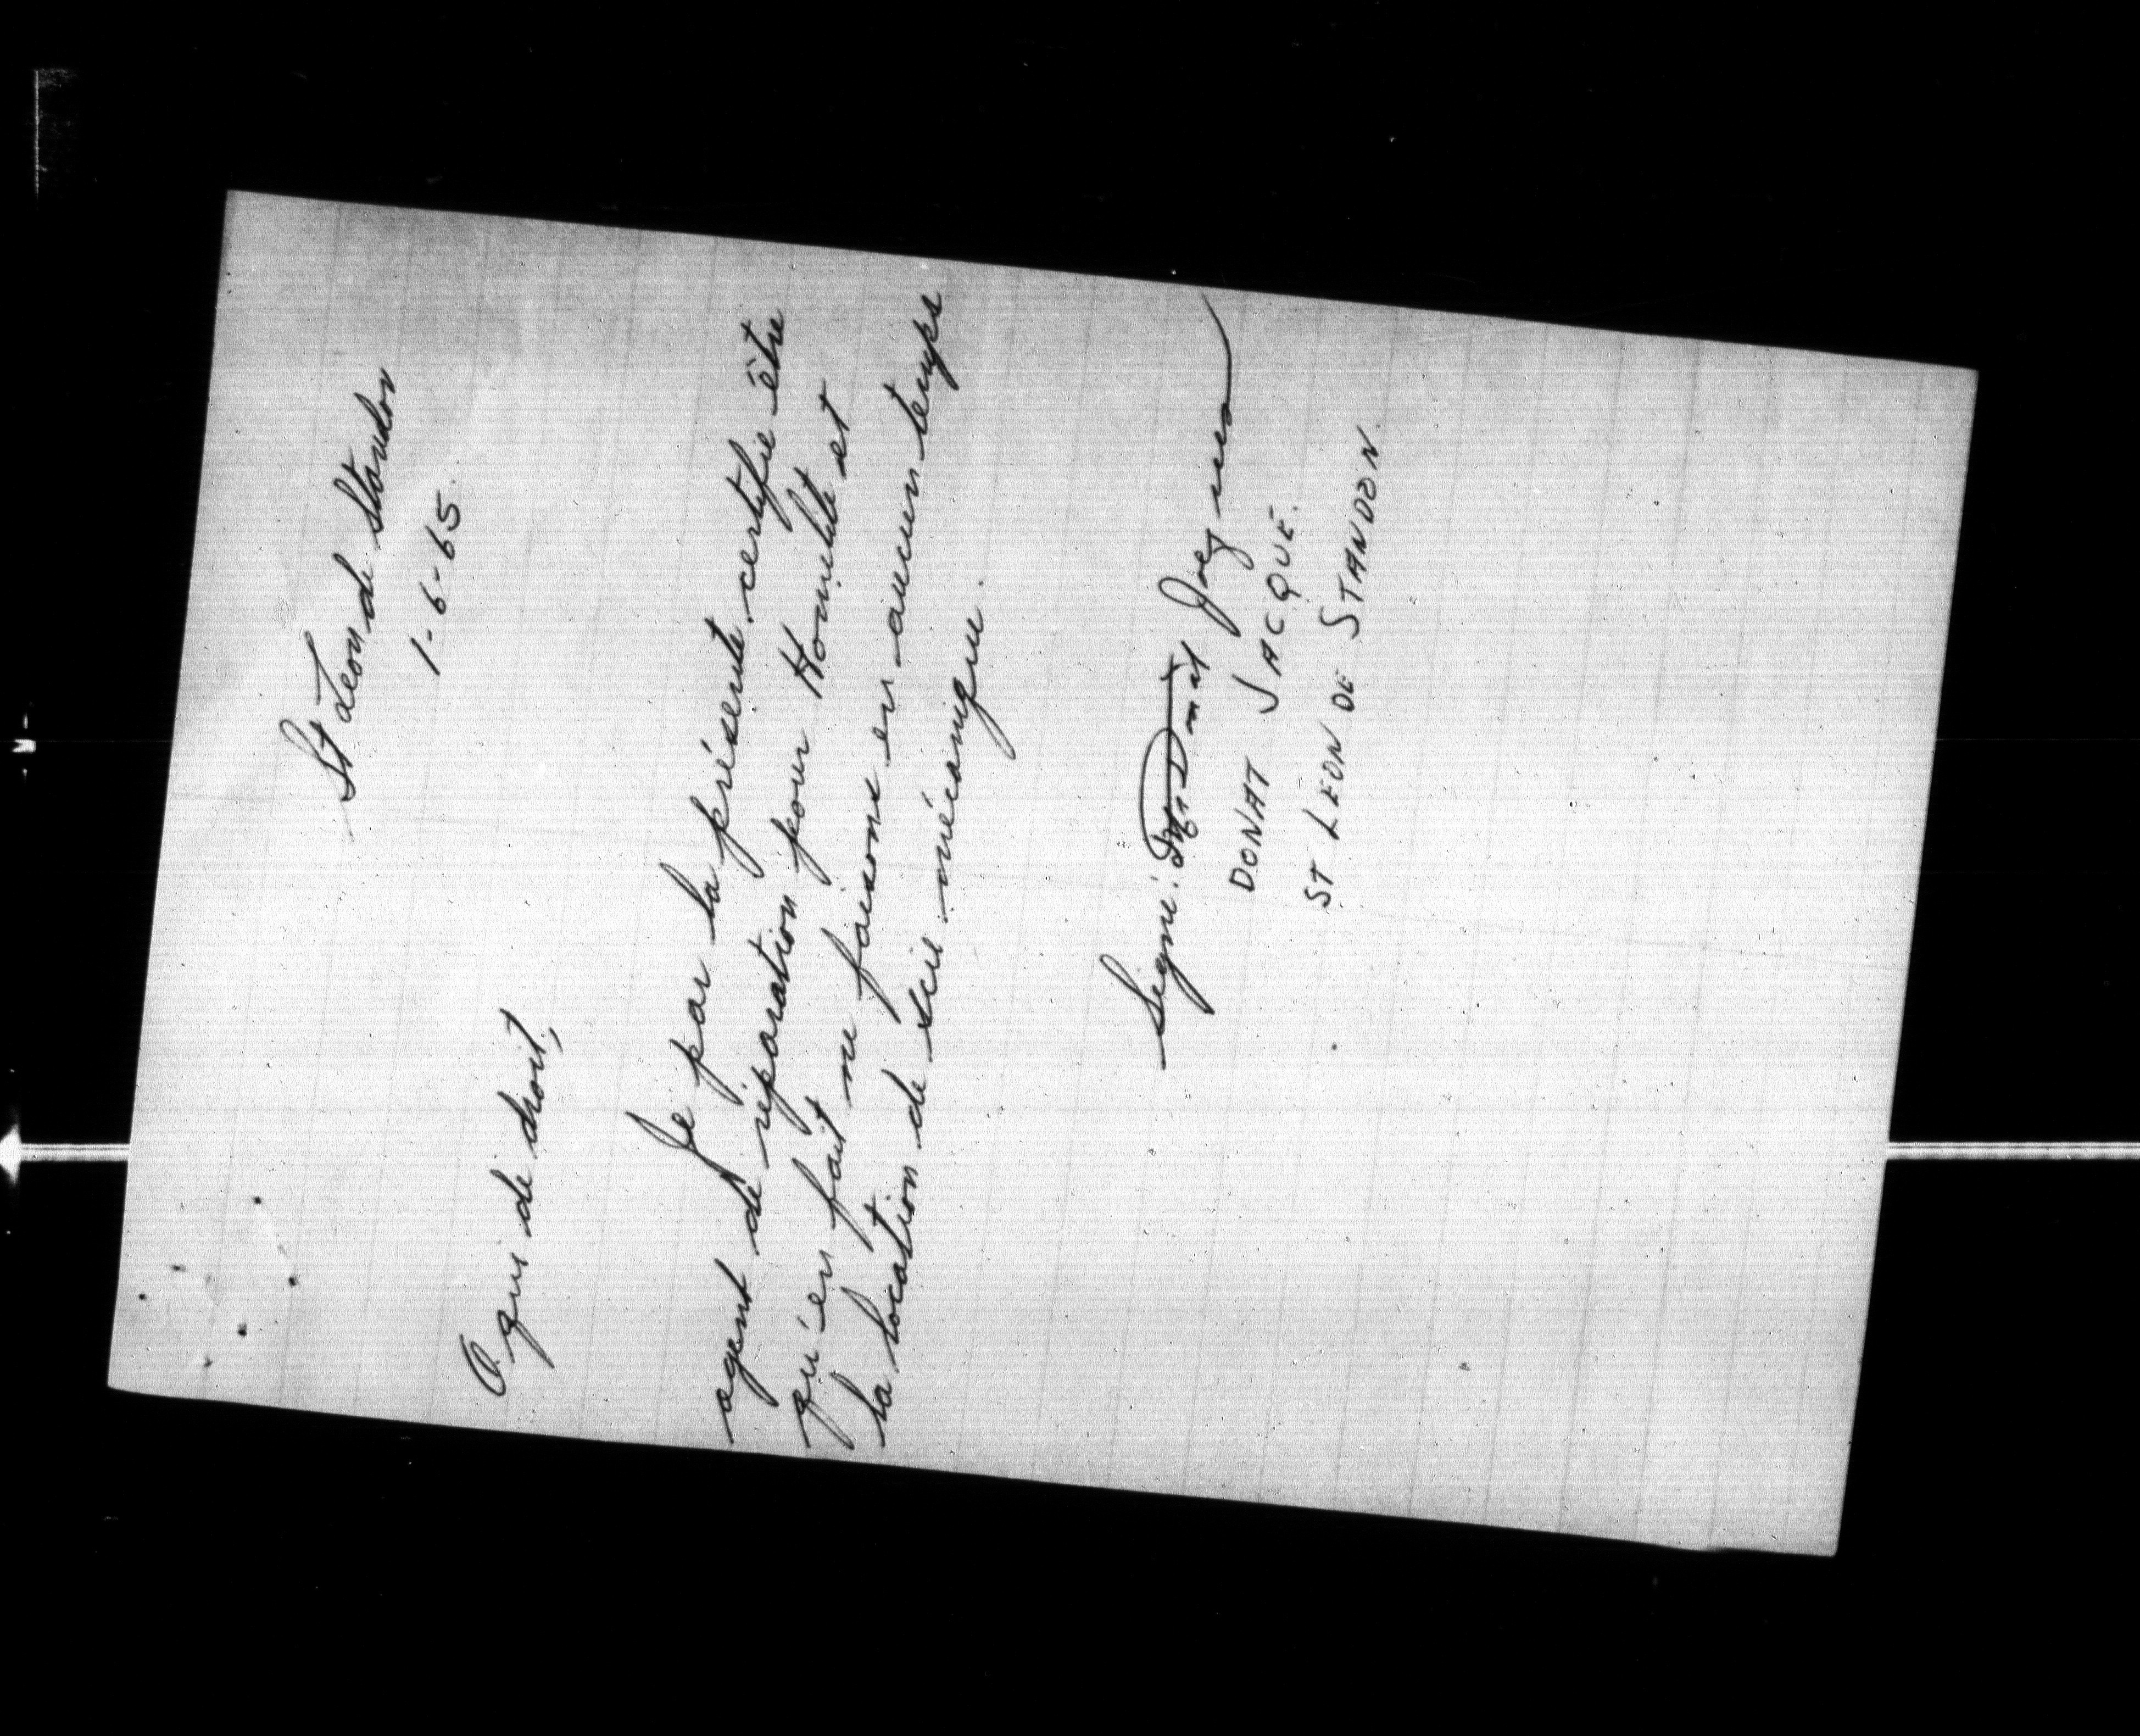 St Leon de Standon
1-6-65.
A qui de droit,
Je par la présente certifie être
agent de réparation pour Homelite et
qu'en fait ne faisons en aucun temps
la location de scie mécanique.
Signé: Donat
DONAT JACQUE.
ST LEON DE STANDON.